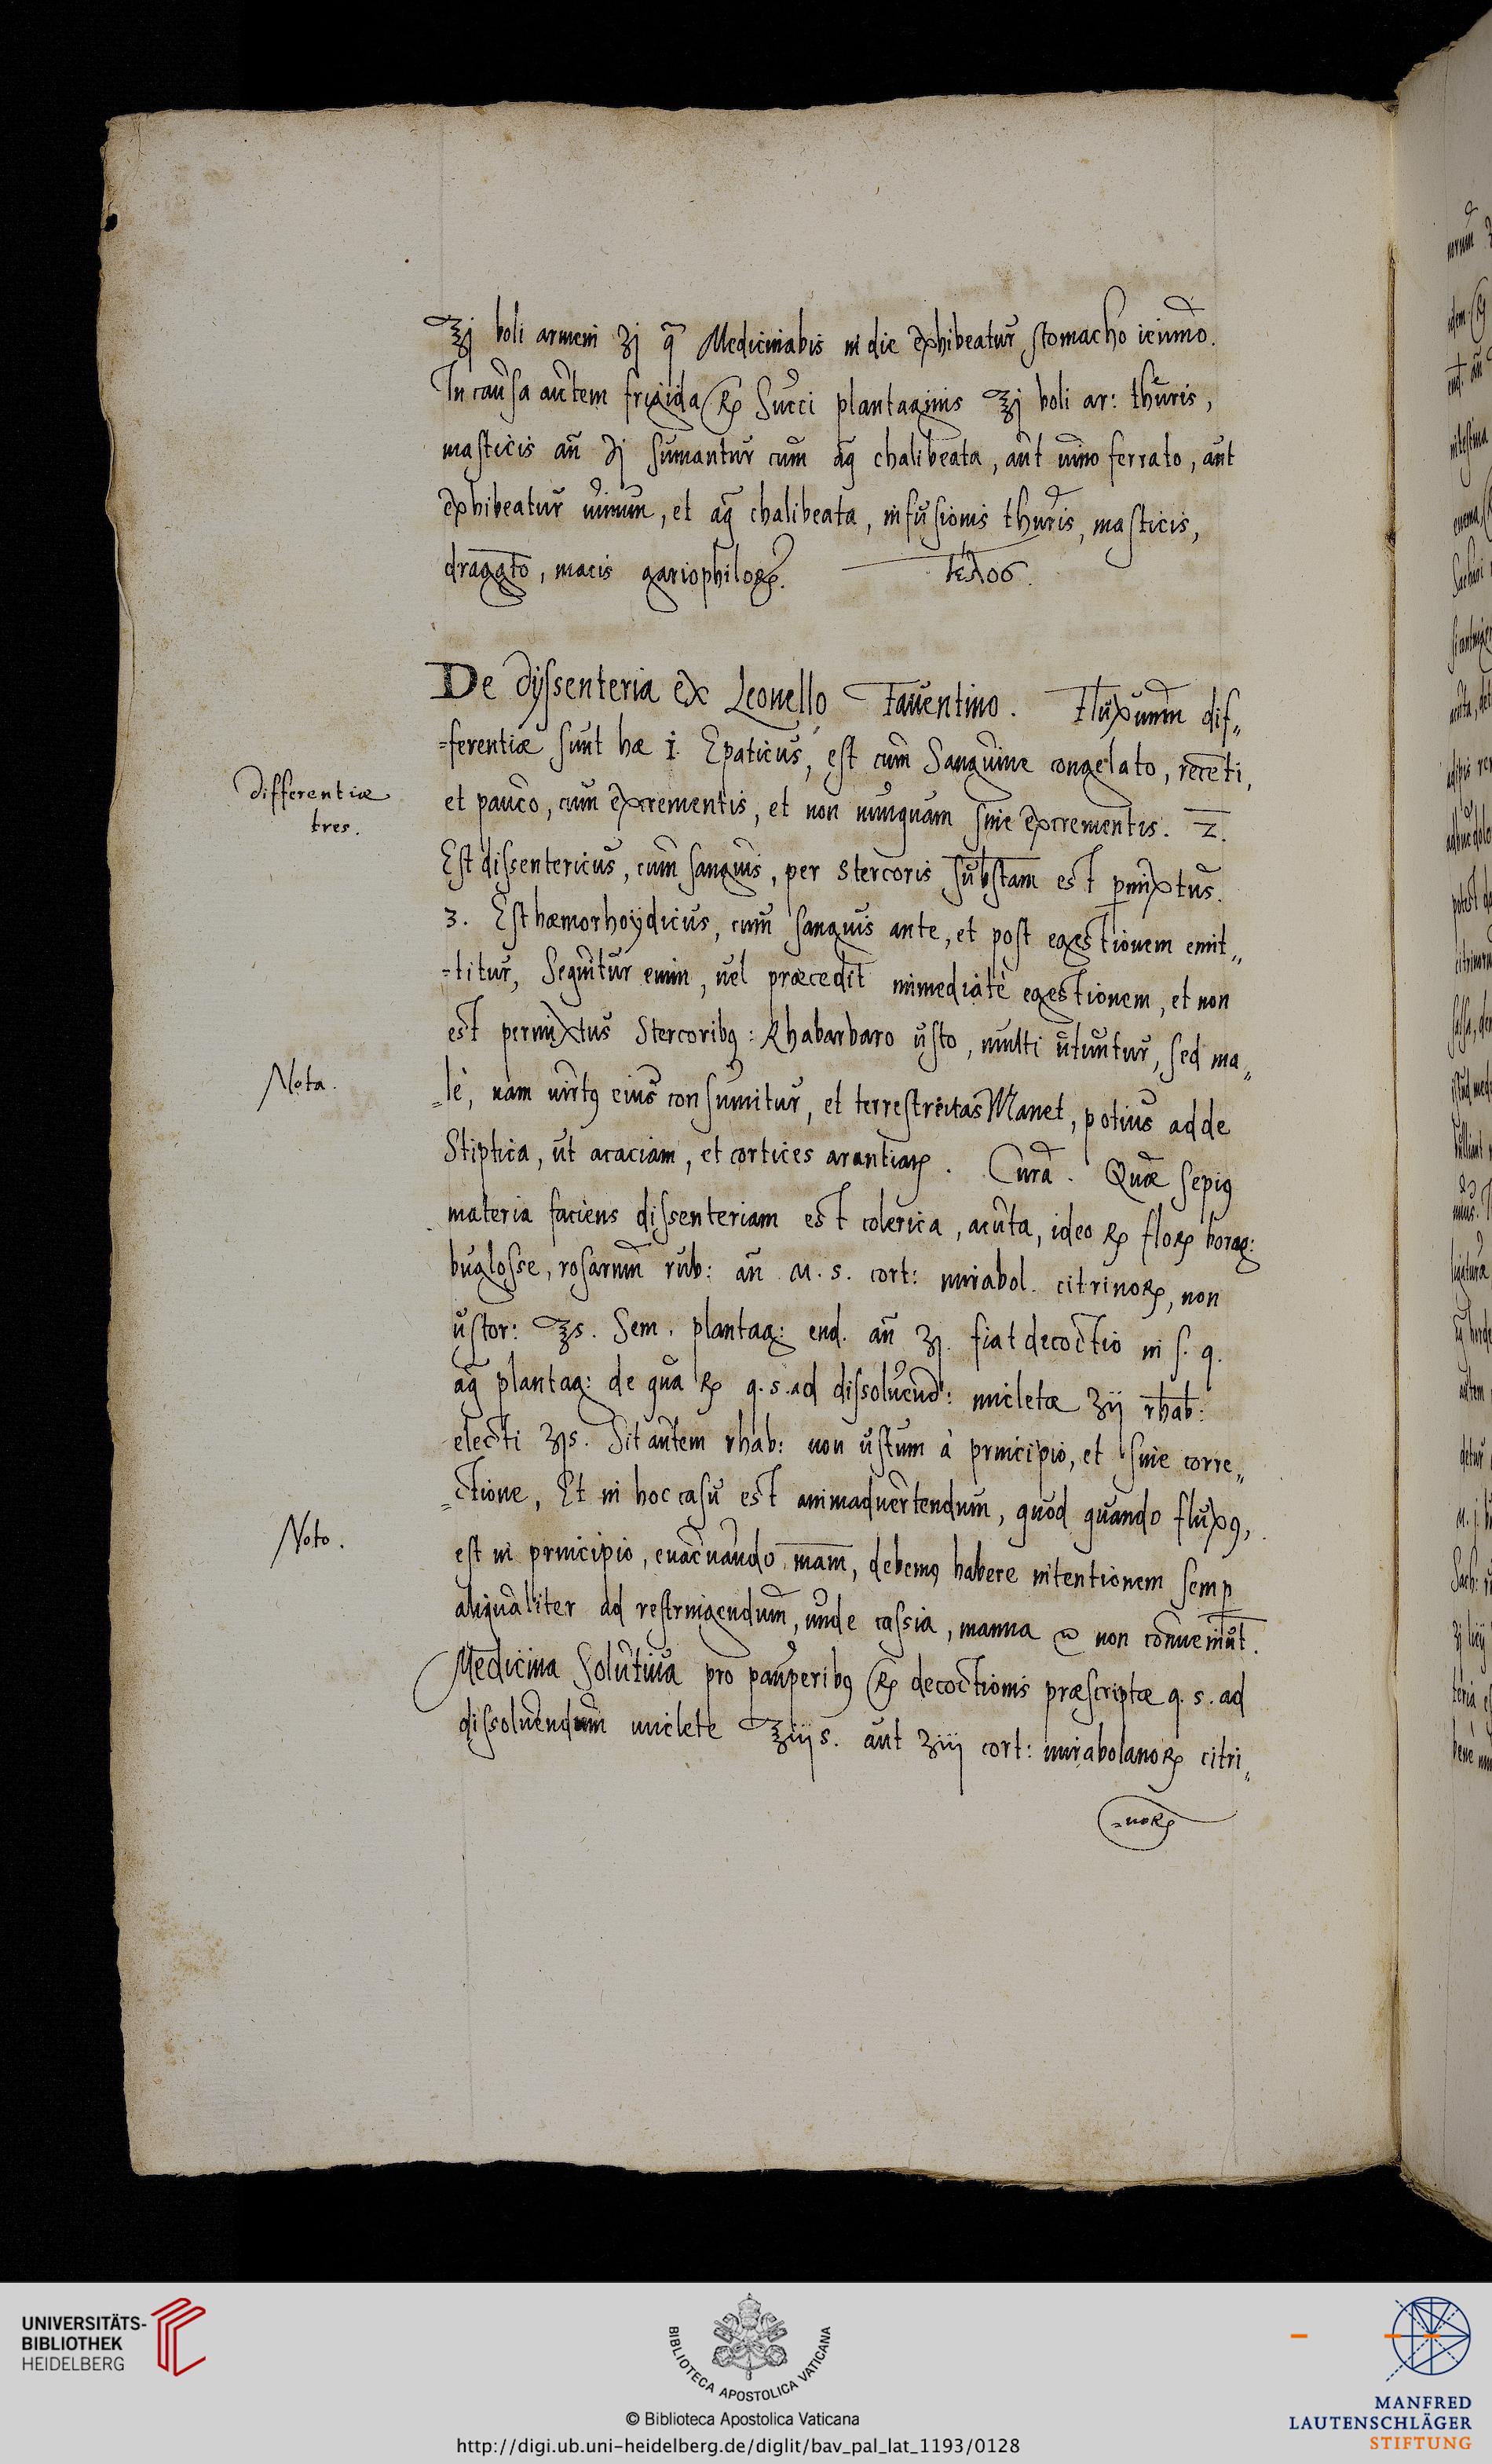 ℥j boli armeni ʒj qꝫ Medicinabis in die exhibeatur stomacho ieiuno.
In causa autem frigida ℞ Succi plantaginis ℥j boli ar: thuris,
masticis añ ℈j sumantur cum aq̃ chalibeata, aut uino ferrato, aut
exhibeatur uinum, et aq̃ chalibeata, infusionis thuris, masticis,
draggto, macis gariophiloꝝ. τέλος.
De dyssenteria ex Leonello Fauentino. Fluxuum dif„
=ferentiæ sunt hæ i. Epaticus, est cum Sanguine congelato, recēti,
et pauco, cum excrementis, et non nunquam sine excrementis. 2.
Differentiæ
tres.
Est dissentericus, cum sanguis, per stercoris substam est p̱mixtus.
3. Est hæmorhoydicus, cum sanguis ante, et post egestionem emit„
=titur, Sequitur enim, uel præcedit immediatè egestionem, et non
est permixtus Stercoribꝰ: Rhabarbaro usto, multi utuntur, sed ma„
Nota.
„lè, nam uirtꝰ eius consumitur, et terrestreitas Manet, potius adde
Stiptica, ut acaciam, et cortices arantiaꝝ. Cura. Quæ sepiꝰ
materia faciens dissenteriam est colerica, acuta, ideo ℞ floꝝ borag:
buglosse, rosarum rub: añ M. s. cort: mirabol. citrinoꝝ, non
ustor: ℥s. Sem. plantag: end. añ ʒj. fiat decoctio in s. q.
aq̃ plantag: de qua ℞ q. s. ad dissoluend: micletæ ʒij rhab:
electi ʒjs. Sit autem rhab: non ustum à principio, et sine corre„
„ctione, Et in hoc casu est animaduertendum, quod quando fluxꝰ,
Noto.
est in principio, euacuando mam, debemꝰ habere intentionem semp̱
aliqualiter ad restringendum, unde cassia, manna non conueniūt.
Medicina Solutiua pro pauperibꝰ ℞ decoctionis præscriptæ q. s. ad
dissoluendum miclete ℥iijs. aut ʒiij cort: mirabolanoꝝ citri„
=noꝝ
UNIVERSITÄTS-
BIBLIOTHEK
HEIDELBERG
BIBLIOTECA APOSTOLICA VATICANA
© Biblioteca Apostolica Vaticana
http://digi.ub.uni-heidelberg.de/diglit/bav_pal_lat_1193/0128
MANFRED
LAUTENSCHLÄGER
STIFTUNG